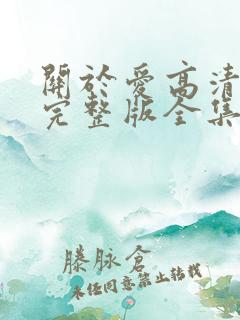 關於愛高清
完整版全集
滕脉倉
未任同意禁止转载